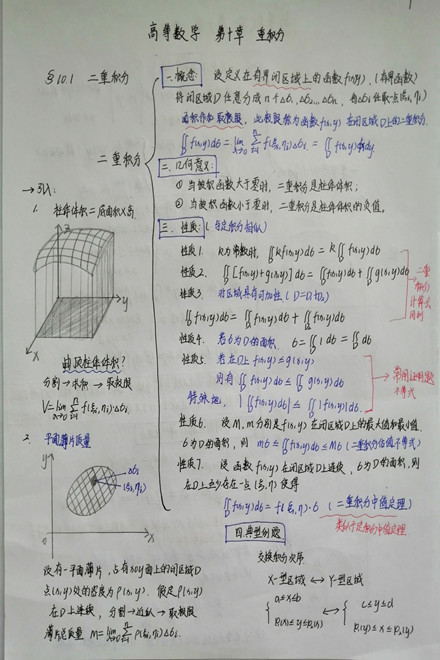 高等数学 第十章 重积分
§10.1 二重积分
二重积分
一.概念: 设定义在有界闭区域上的函数f(x,y), (有界函数)
将闭区域D任意分成n个Δσ₁,Δσ₂…Δσₙ, 每Δσᵢ任取一点(ξᵢ,ηᵢ)
函数f(x,y)在闭区域D上的二重积分.
∬f(x,y)dσ = lim Σ f(ξᵢ,ηᵢ)Δσᵢ = ∬f(x,y)dxdy
二.几何意义:
① 当被积函数大于零时, 二重积分是柱体体积;
② 当被积函数小于零时, 二重积分是柱体体积的负值.
三. 性质: (与定积分相似)
性质1. k为常数时, ∬kf(x,y)dσ = k∬f(x,y)dσ
性质2. ∬[f(x,y)+g(x,y)]dσ = ∬f(x,y)dσ + ∬g(x,y)dσ
性质3. 对区域具有可加性 (D=D₁+D₂)
∬f(x,y)dσ = ∬f(x,y)dσ + ∬f(x,y)dσ
二重积分计算会用到
性质4. 若σ为D的面积, σ=∬1dσ=∬dσ
性质5. 若在D上 f(x,y)≤g(x,y)
则有 ∬f(x,y)dσ ≤ ∬g(x,y)dσ
特殊地, |∬f(x,y)dσ| ≤ ∬|f(x,y)|dσ.
常用证明题
不等式
性质6. 设M,m分别是f(x,y)在闭区域D上的最大值和最小值.
σ为D的面积, 则 mσ≤∬f(x,y)dσ≤Mσ (二重积分估值不等式)
性质7. 设函数f(x,y)在闭区域D上连续, σ为D的面积,则
在D上至少存在一点(ξ,η)使得
∬f(x,y)dσ = f(ξ,η)·σ (二重积分中值定理)
类似于定积分中值定理
四.典型例题
交换积分次序
X-型区域 ↔ Y-型区域
{ a≤x≤b ↔ { c≤y≤d
→引入:
1. 柱体体积=底面积×高
z
y
x
曲顶柱体体积?
分割→求和→取极限
V=lim Σ f(ξᵢ,ηᵢ)Δσᵢ
2. 平面薄片质量
y
Δσᵢ
(ξᵢ,ηᵢ)
0
x
设有一平面薄片,占有xoy面上的闭区域D
点(x,y)处的密度为ρ(x,y). 假定ρ(x,y)
在D上连续, 分割→近似→取极限
薄片总质量 M=lim Σ ρ(ξᵢ,ηᵢ)Δσᵢ